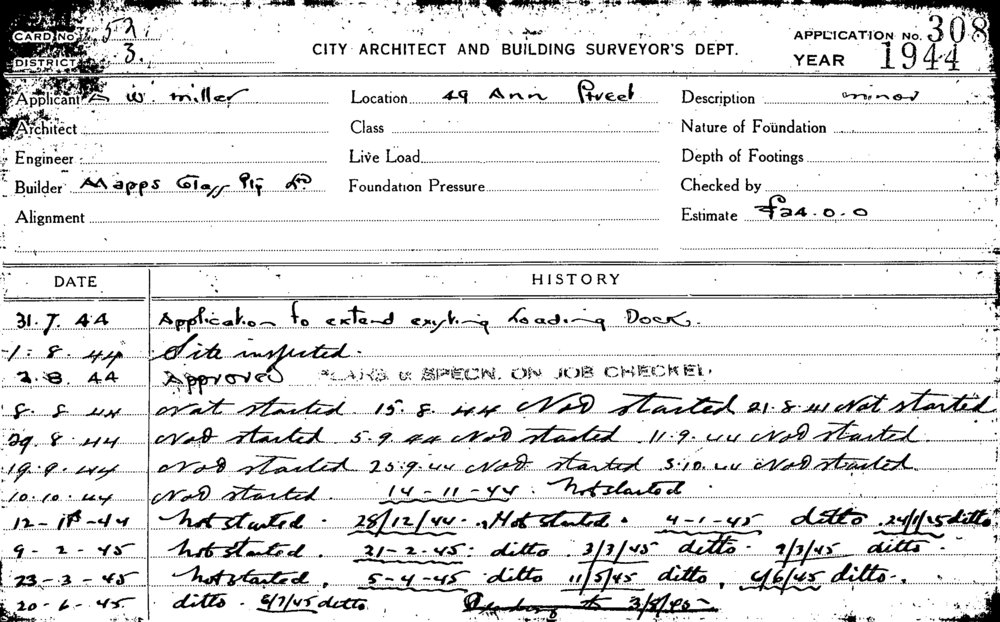 CARD No. 52.
DISTRICT 3.
CITY ARCHITECT AND BUILDING SURVEYOR'S DEPT.
APPLICATION No. 308
YEAR 1944
Applicant A W. Miller Location 49 Ann Street Description minor
Architect Class Nature of Foundation
Engineer Live Load Depth of Footings
Builder Mapps Glass Pty Ltd Foundation Pressure Checked by
Alignment Estimate £24.0.0
DATE HISTORY
31.7.44 Application to extend existing Loading Dock.
1.8.44 Site inspected.
2.8.44 Approved PLANS & SPECN. ON JOB CHECKED.
8.8.44 Not started 15.8.44 Not started 21.8.44 Not started
29.8.44 Not started 5.9.44 Not started 11.9.44 Not started.
19.9.44 Not started 25.9.44 Not started 3.10.44 Not started.
10.10.44 Not started. 14-11-44. Not started.
12-12-44 Not started. 28/12/44. Not started. 4-1-45 ditto. 24/1/45 ditto
9-2-45 Not started. 21-2-45: ditto. 3/3/45 ditto. 9/3/45 ditto.
23-3-45 Not started, 5-4-45 ditto 11/5/45 ditto, 4/6/45 ditto.
20-6-45. ditto. 9/7/45 ditto. to 3/8/45